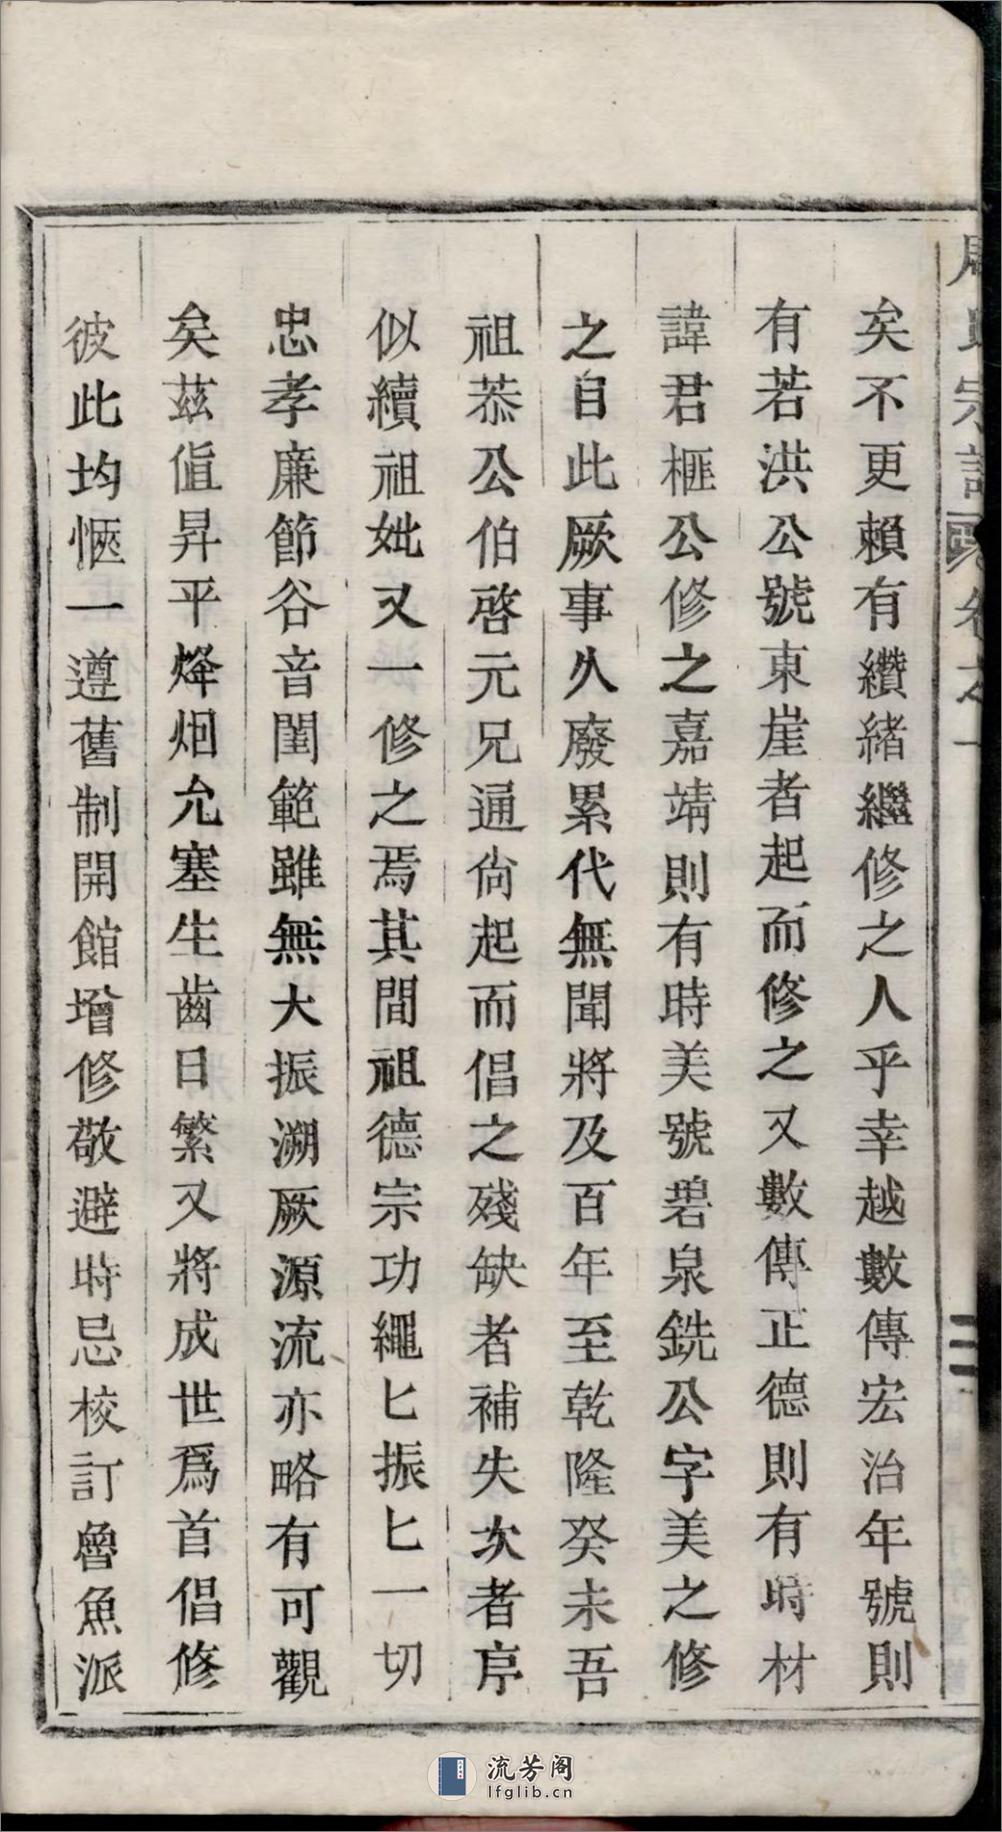 矣不更賴有纘緒繼修之人乎幸越數傳宏治年號則
有若洪公號東崖者起而修之又數傳正德則有時材
諱君榧公修之嘉靖則有時美號碧泉銑公字美之修
之自此厥事久廢累代無聞將及百年至乾隆癸未吾
祖恭公伯啓元兄通尙起而倡之殘缺者補失次者序
似續祖妣又一修之焉其間祖德宗功繩匕振匕一切
忠孝廉節谷音閨範雖無大振溯厥源流亦略有可觀
矣茲値昇平烽烟允塞生齒日繁又將成世爲首倡修
彼此均愜一遵舊制開館增修敬避時忌校訂魯魚派
宗譜
卷之一
流芳阁
lfglib.cn